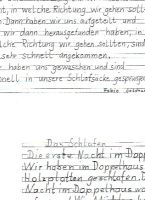 t, in welche Richtung wir gehen soll
. Dann haben wir uns aufgeteilt und
wir dann herausgefunden haben, in
elche Richtung wir gehen sollten, sind
sehr schnell angekommen.
r haben uns gewaschen und sind
nell in unsere Schlafsäcke gesprungen
Das Schlafen
Die erste Nacht im Dopp
Wir haben im Doppelhaus
geschlafen. D
Nacht im Doppelhaus wa